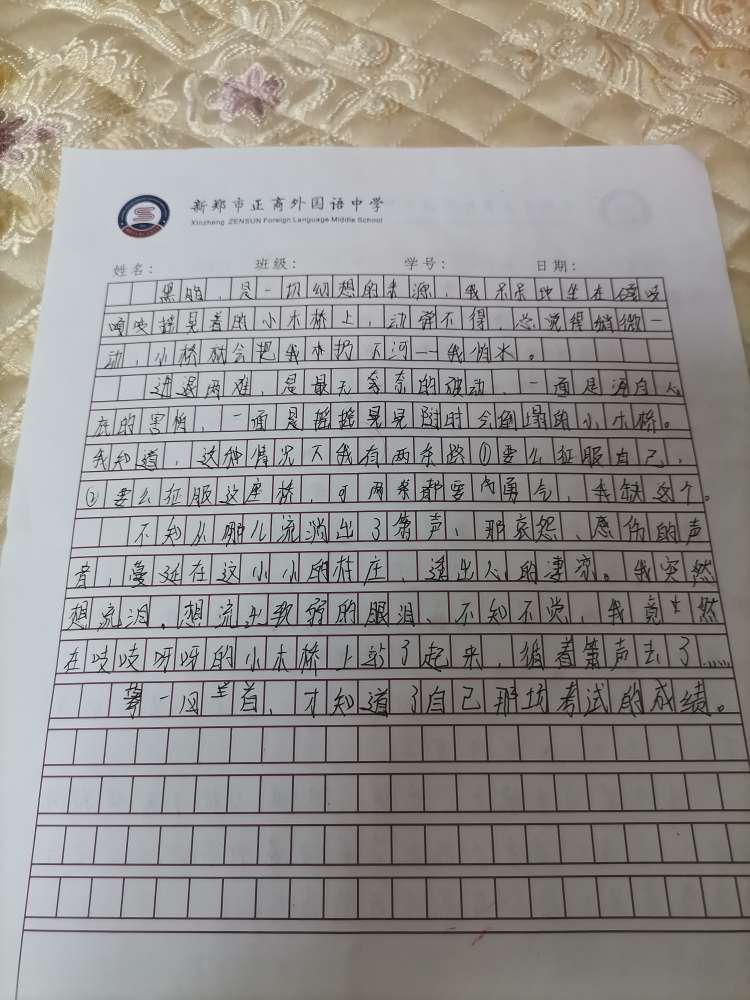 新郑市正商外国语中学
Xinzheng ZENSUN Foreign Language Middle School
姓名： 班级： 学号： 日期：
黑暗，是一切幻想的来源，我呆呆地坐在嘎吱
嘎吱摇晃着的小木桥上，动弹不得，总觉得稍微一
动，小桥就会把我扔下河——我怕水。
进退两难，是最无奈的，一面是源自人
底的害怕，一面是摇摇晃晃随时会倒塌的小木桥。
我知道，这种情况下我有两条路①要么征服自己，
②要么征服这座桥，可两条都要勇气，我缺这个。
不知从哪儿流淌出了箫声，那哀怨、感伤的声
音，蔓延在这小小的村庄，透出人的凄凉。我突然
想流泪，想流出软弱的眼泪、不知不觉，我竟然
在吱吱呀呀的小木桥上站了起来，循着箫声去了……
一回首，才知道了自己那场考试的成绩。